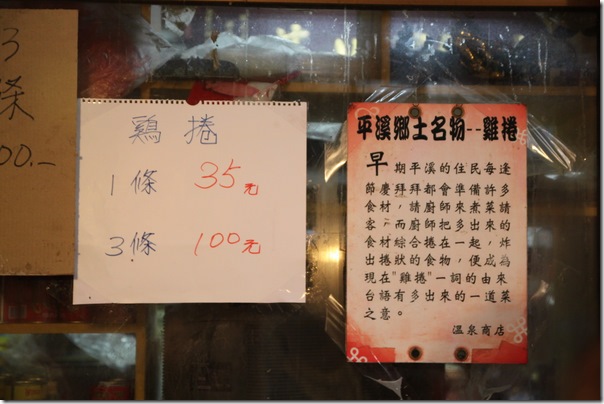 3
條
00.-
鷄捲
1條 35元
3條 100元
平溪鄉土名物--雞捲
早期平溪的住民每逢
節慶拜拜都會準備許多
食材，請廚師來煮菜請
客，而廚師把多出來的
食材綜合捲在一起，炸
出捲狀的食物，便成為
現在"雞捲"一詞的由來
台語有多出來的一道菜
之意。
溫泉商店